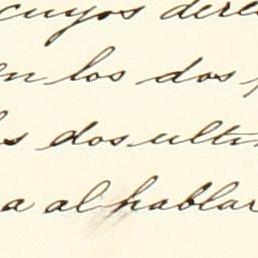 cuyos dere
en los dos
s dos ulti
a al hablar